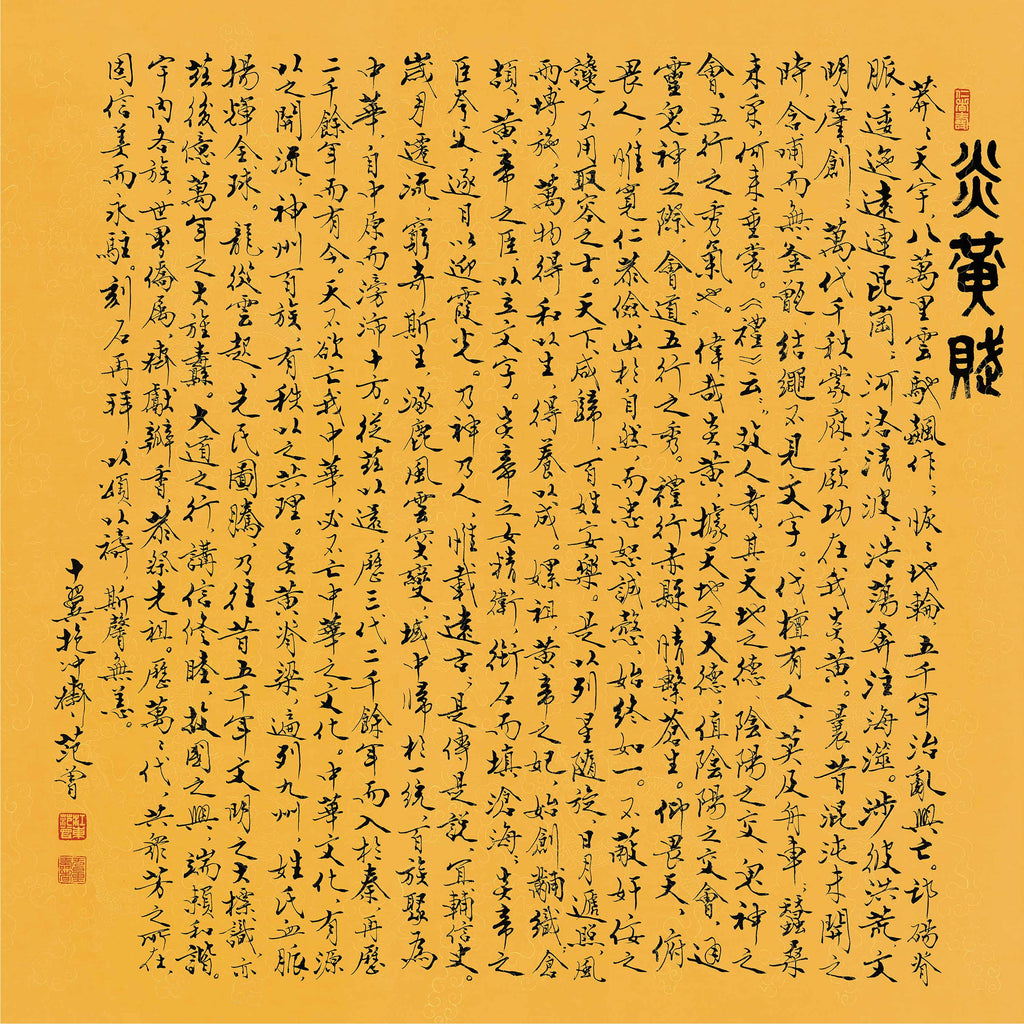 炎黃賦
莽莽天宇，八萬里雲馳飆作；恢恢地輪，五千年治亂興亡。邙碭脊
脈，逶迤遠連昆崗；河洛清波，浩蕩奔注海澨。涉彼洪荒，文
明肇創；萬代千秋蒙庥，厥功在我炎黃。曩昔混沌未開之
時，含哺而無釜甑，結繩不見文字。伐檀有人，莫及舟車；蠶桑
未宗，何來垂裳。《禮》云：故人者，其天地之德、陰陽之交、鬼神之
會、五行之秀氣也。偉哉炎黃，據天地之大德，值陰陽之交會，通
靈鬼神之際，會道五行之秀。禮行赤縣，情繫蒼生。仰畏天，俯
畏人，惟寬仁恭儉，出於自然，而忠恕誠慤，始終如一。不蔽奸佞之
讒，不用取容之士。天下咸歸，百姓安樂。是以列星隨旋，日月遞照，風
雨博施，萬物得和以生，得養以成。嫘祖，黃帝之妃，始創黼織；倉
頡，黃帝之臣，以立文字。炎帝之女精衛，銜石而填滄海；炎帝之
臣夸父，逐日以迎霞光。乃神乃人，惟載遠古；是傳是說，宜輔信史。
歲月遷流，窮奇斯生，涿鹿風雲突變，域中歸於一統，百族聚為
中華，自中原而滂沛十方。從茲以遠，歷三代二千餘年而入於秦，再歷
二千餘年而有今。天不欲亡我中華，必不亡中華之文化。中華文化，有源
以之開流；神州百族，有秩以之共理。炎黃脊梁，遍列九州，姓氏血脈，
揚輝全球。龍從雲起，先民圖騰，乃往昔五千年文明之大標識，亦
茲後億萬年之大旌纛。大道之行，講信修睦，故國之興，端賴和諧。
宇內各族，世界僑屬，齊獻瓣香，恭祭先祖。歷萬萬代，共眾芳之所在，
固信美而永駐。刻石再拜，以頌以禱，斯馨無恙。
十翼抱沖齋 范曾